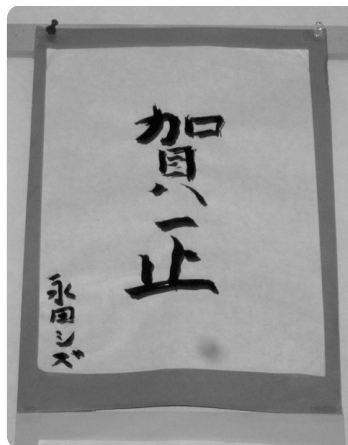 賀正
永田シズ